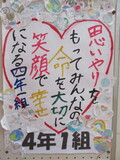 思いやりを
もってみんなの
命を大切に
笑顔で幸せ
になる四年一組
4年1組